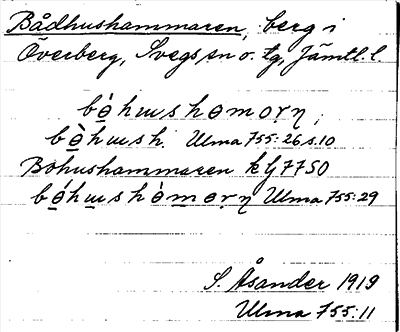 Bådhushammaren, berg i
Överberg, Svegs sn o. tg, Jämtl. l.
bə̀hɯshamoṛn̥,
bə̀hɯsh. Ulma 755:26 s.10
Bohushammaren kG 7750
bə́hɯshàmoṛn̥ Ulma 755:29
S. Åsander 1919
Ulma 755:11